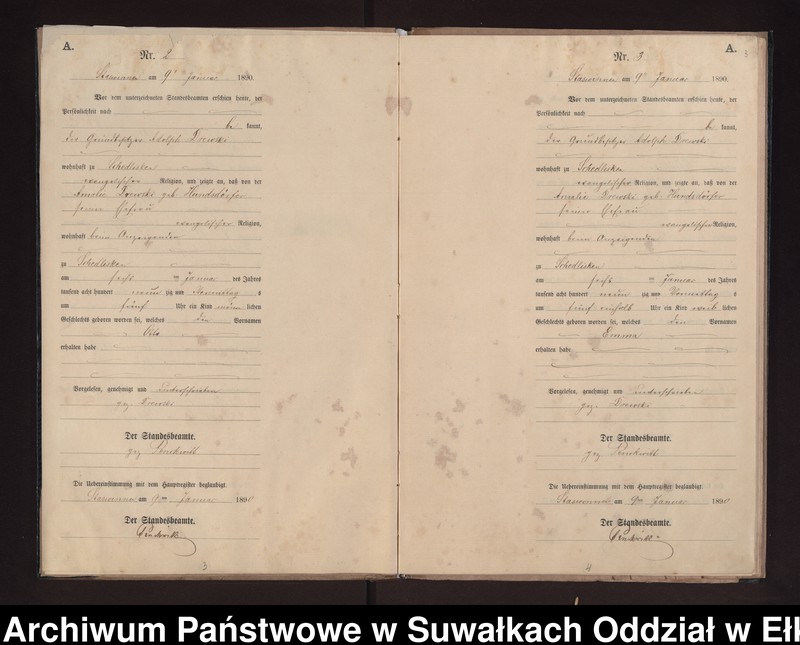 A.
Nr. 2
am 9ten Januar 1890.
Vor dem unterzeichneten Standesbeamten erschien heute, der
Persönlichkeit nach
be kannt,
der Grundbesitzer Adolph Drewski
wohnhaft zu Schedlisken
evangelischer Religion, und zeigte an, daß von der
Amalie Drewski geb Hundsdörfer
seiner Ehefrau
evangelischer Religion,
wohnhaft beim Anzeigenden
zu Schedlisken
am sechs ten Januar des Jahres
tausend acht hundert neun zig um Vormittag s
um fünf Uhr ein Kind männ lichen
Geschlechts geboren worden sei, welches den Vornamen
Otto
erhalten habe
Vorgelesen, genehmigt und unterschrieben
gez. Drewski
Der Standesbeamte.
gez
Die Uebereinstimmung mit dem Hauptregister beglaubigt.
am 9ten Januar 1890
Der Standesbeamte.
3
A.
3
Nr. 3
am 9ten Januar 1890.
Vor dem unterzeichneten Standesbeamten erschien heute, der
Persönlichkeit nach
be kannt,
der Grundbesitzer Adolph Drewski
wohnhaft zu Schedlisken
evangelischer Religion, und zeigte an, daß von der
Amalie Drewski geb Hundsdörfer
seiner Ehefrau
evangelischer Religion,
wohnhaft beim Anzeigenden
zu Schedlisken
am sechs ten Januar des Jahres
tausend acht hundert neun zig um Vormittag s
um fünf einhalb Uhr ein Kind weib lichen
Geschlechts geboren worden sei, welches den Vornamen
Emma
erhalten habe
Vorgelesen, genehmigt und unterschrieben
gez. Drewski
Der Standesbeamte.
gez
Die Uebereinstimmung mit dem Hauptregister beglaubigt.
am 9ten Januar 1890
Der Standesbeamte.
4
Archiwum Państwowe w Suwałkach Oddział w Ełk